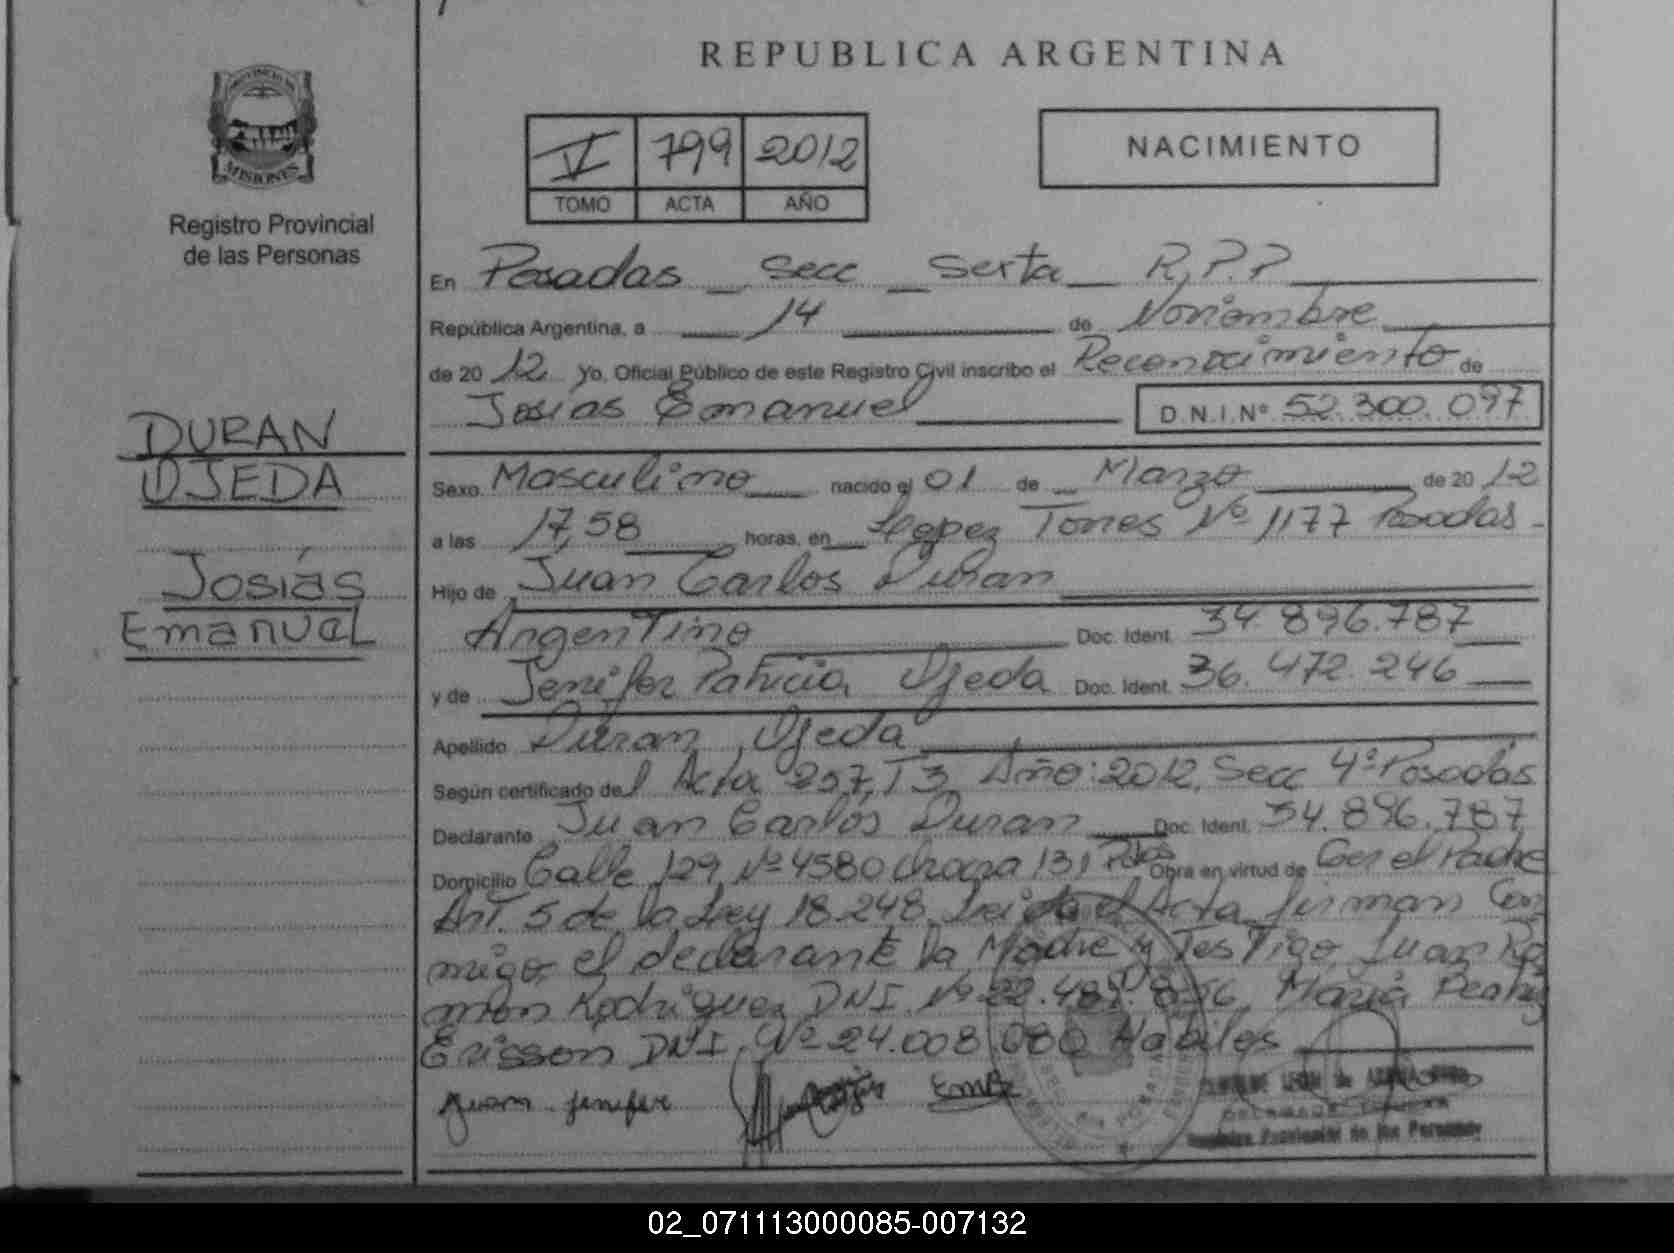 REPUBLICA ARGENTINA
MISIONES
Registro Provincial
de las Personas
V 799 2012
TOMO ACTA AÑO
NACIMIENTO
DURAN
OJEDA
Josías
Emanuel
En Posadas _ Secc _ Sexta _ R.P.P
República Argentina, a 14 de Noviembre
de 20 12 Yo, Oficial Público de este Registro Civil inscribo el Reconocimiento de
Josías Emanuel D.N.I.Nº 52.300.097
Sexo Masculino nacido el 01 de Marzo de 20 12
a las 17,58 horas, en Lopez Torres Nº 1177 Posadas
Hijo de Juan Carlos Duran
Argentino Doc. Ident. 34.896.787
y de Jenifer Patricia Ojeda Doc. Ident. 36.472.246
Apellido Duran Ojeda
Según certificado del Acta 257, T3, Año: 2012, Secc 4º Posadas
Declarante Juan Carlos Duran Doc. Ident. 34.896.787
Domicilio Calle 129 Nº 4580 chacra 131 Pdas Obra en virtud de Ser el Padre
Art. 5 de la Ley 18.248. Leida el Acta firman Con
migo, el declarante la Madre y Testigo Juan Ra
mon Rodriguez DNI. Nº 22. Maria
Erisson DNI. Nº 24.008.080 Habiles
Juan Jenifer
Registro Provincial de las Personas
02_071113000085-007132